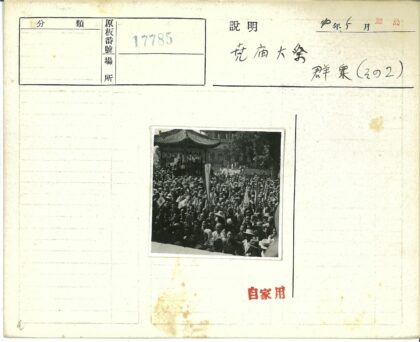 分類
原板番號場所
17785
說明
年5月
堯庙大祭
群衆(その2)
自家用